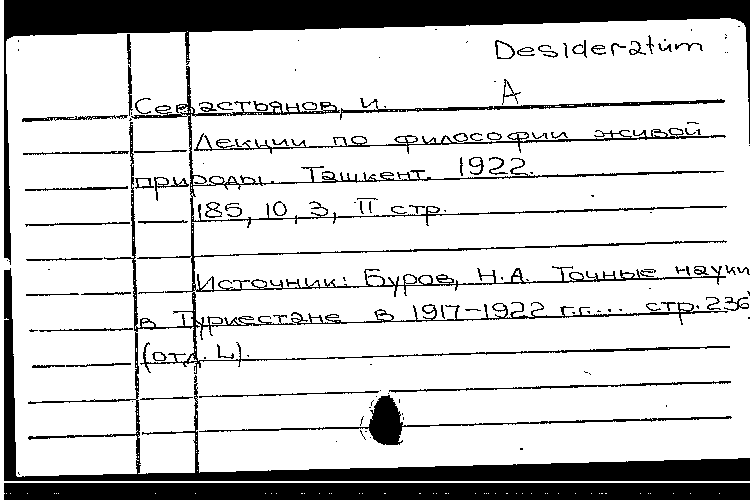 Desideratum
A
Севастьянов, И.
Лекции по философии живой
природы. Ташкент. 1922.
185, 10, 3, II стр.
Источник: Буров, Н.А. Точные науки
в Туркестане в 1917-1922 г.г... стр. 236
(отд. L).